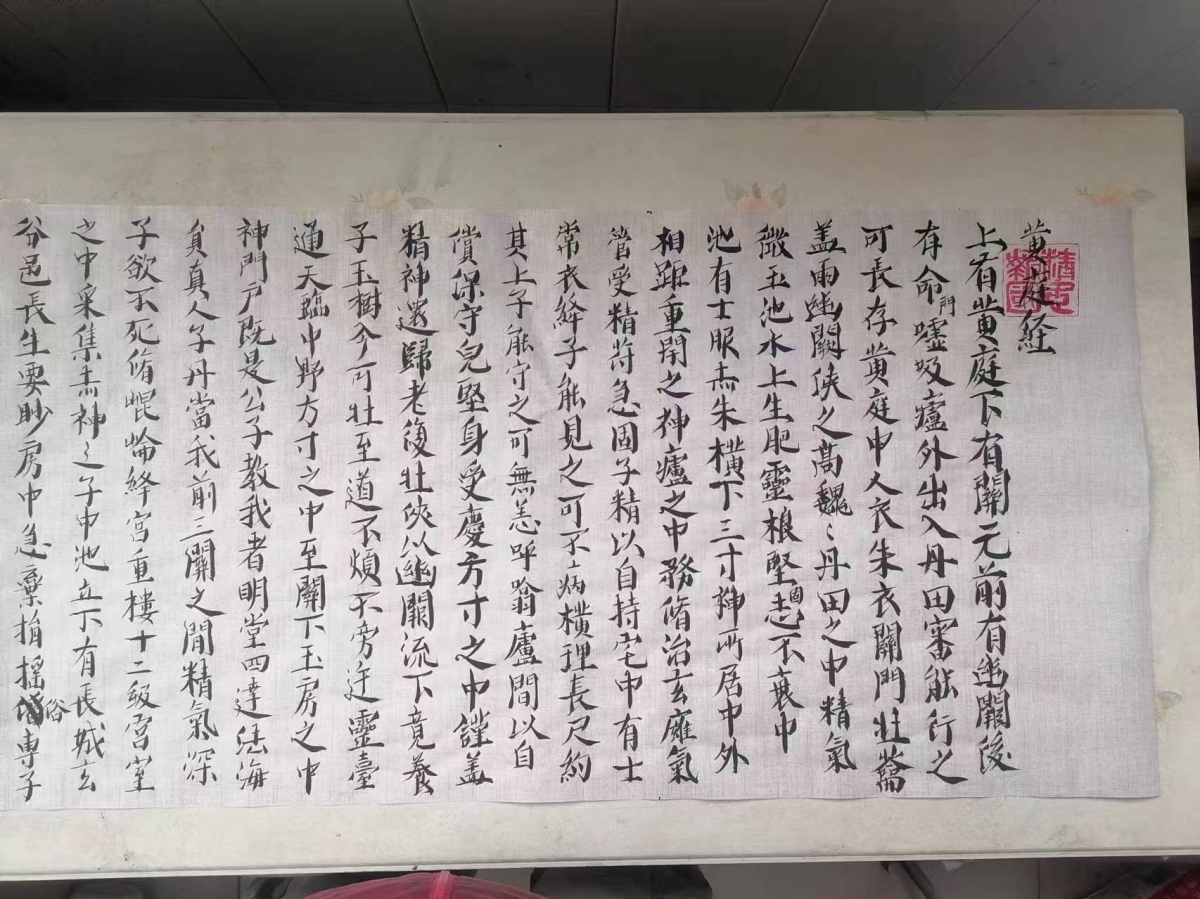 黄庭経
上有黄庭下有關元前有幽闕後
有命門噓吸廬外出入丹田審能行之
可長存黄庭中人衣朱衣關門壮蘥
盖兩幽闕侠之高魏〻丹田之中精氣
微玉池水上生肥靈根堅固志不衰中
池有士服赤朱横下三寸神所居中外
相距重閇之神廬之中務脩治玄廱氣
管受精苻急固子精以自持宅中有士
常衣絳子能見之可不病横理長尺約
其上子能守之可無恙呼噏廬間以自
償保守皃堅身受慶方寸之中謹盖
精神還歸老復壮侠以幽闕流下竟養
子玉樹令可壮至道不煩不旁迕靈臺
通天臨中野方寸之中至關下玉房之中
神門户既是公子教我者明堂四達法海
負真人子丹當我前三關之間精氣深
子欲不死脩崐崘絳宮重樓十二級宮室
之中采集赤神之子中池立下有長城玄
谷邑長生要眇房中急棄捐揺俗専子